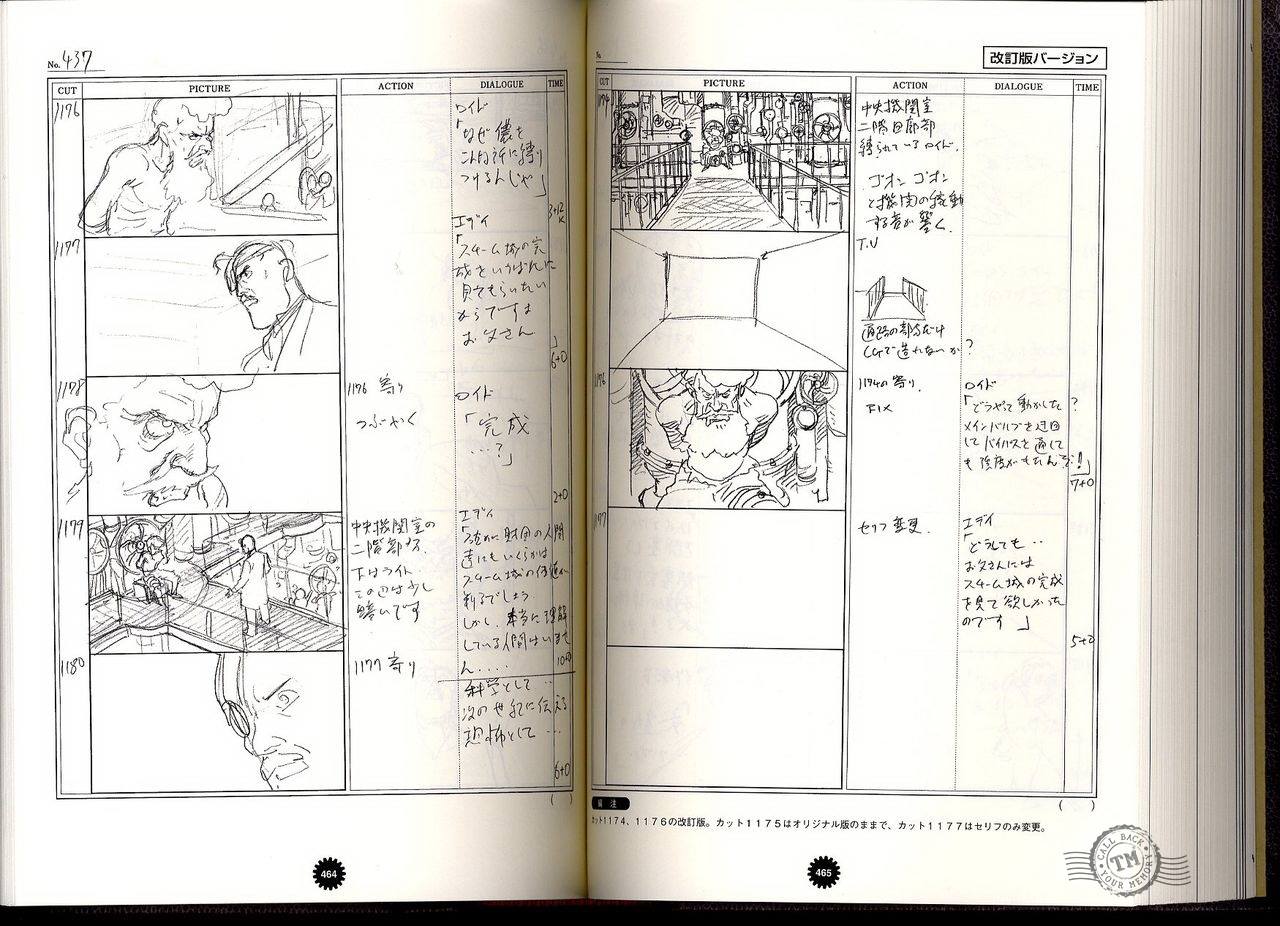 No. 437
CUT PICTURE ACTION DIALOGUE TIME
1176
ロイド
「なぜ儂を
こんな所に縛り
つけるんじゃ」
3+12
エディ
1177
「スチーム城の完
成をいちばんに
見てもらいたい
からですよ
お父さん
」
6+0
1178
1176 寄り
つぶやく
ロイド
「完成
…?」
2+0
1179
中央機関室の
二階部分
下はライト
この辺は少し
暗いです
エディ
財団の人間
達にもいくらかは
スチーム城の価値が
判るでしょう
しかし、本当に理解
している人間はいませ
ん....
10+0
1180
1177 寄り
科学として‥
次の世紀に伝える
恐怖として…
6+0
( )
464
No.
改訂版バージョン
CUT PICTURE ACTION DIALOGUE TIME
1174
中央機関室
二階回廊部
縛られているロイド.
ゴオン ゴオン
と機関の稼動
する音が響く.
T.U
通路の部分だけ
CGで造れないか?
1176
1174の寄り.
FIX
ロイド
「どうやって動かした?
メインバルブを迂回
してバイパスを通して
も強度がもたんぞ!」
7+0
1177
セリフ変更.
エディ
「どうしても‥
お父さんには
スチーム城の完成
を見て欲しかった
のです」
5+0
( )
備 注
カット1174、1176の改訂版。カット1175はオリジナル版のままで、カット1177はセリフのみ変更。
465
CALL BACK
TM
YOUR MEMORY